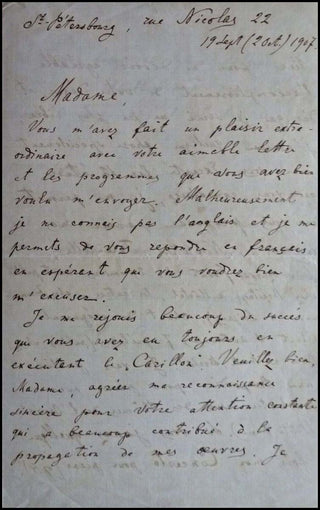 St. Pétersbourg, rue Nicolas 22
19 Sept (2 Oct.) 1907
Madame,
Vous m'avez fait un plaisir extra-
ordinaire avec votre aimable lettre
et les programmes que vous avez bien
voulu m'envoyer. Malheureusement
je ne connais pas l'anglais et je me
permets de vous repondre en français
en espérant que vous voudrez bien
m'excuser.
Je me rejouis beaucoup du succès
que vous avez eu toujours en
exécutent le Carillon. Veuillez bien,
Madame, agréer ma reconnaissance
sincère pour votre attention constante
qui a beaucoup contribué à la
propagation de mes œuvres. Je